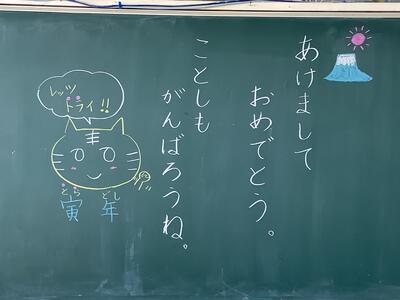 あけまして
おめでとう。
ことしも
がんばろうね。
レッツ
トライ!!
とらどし
寅年